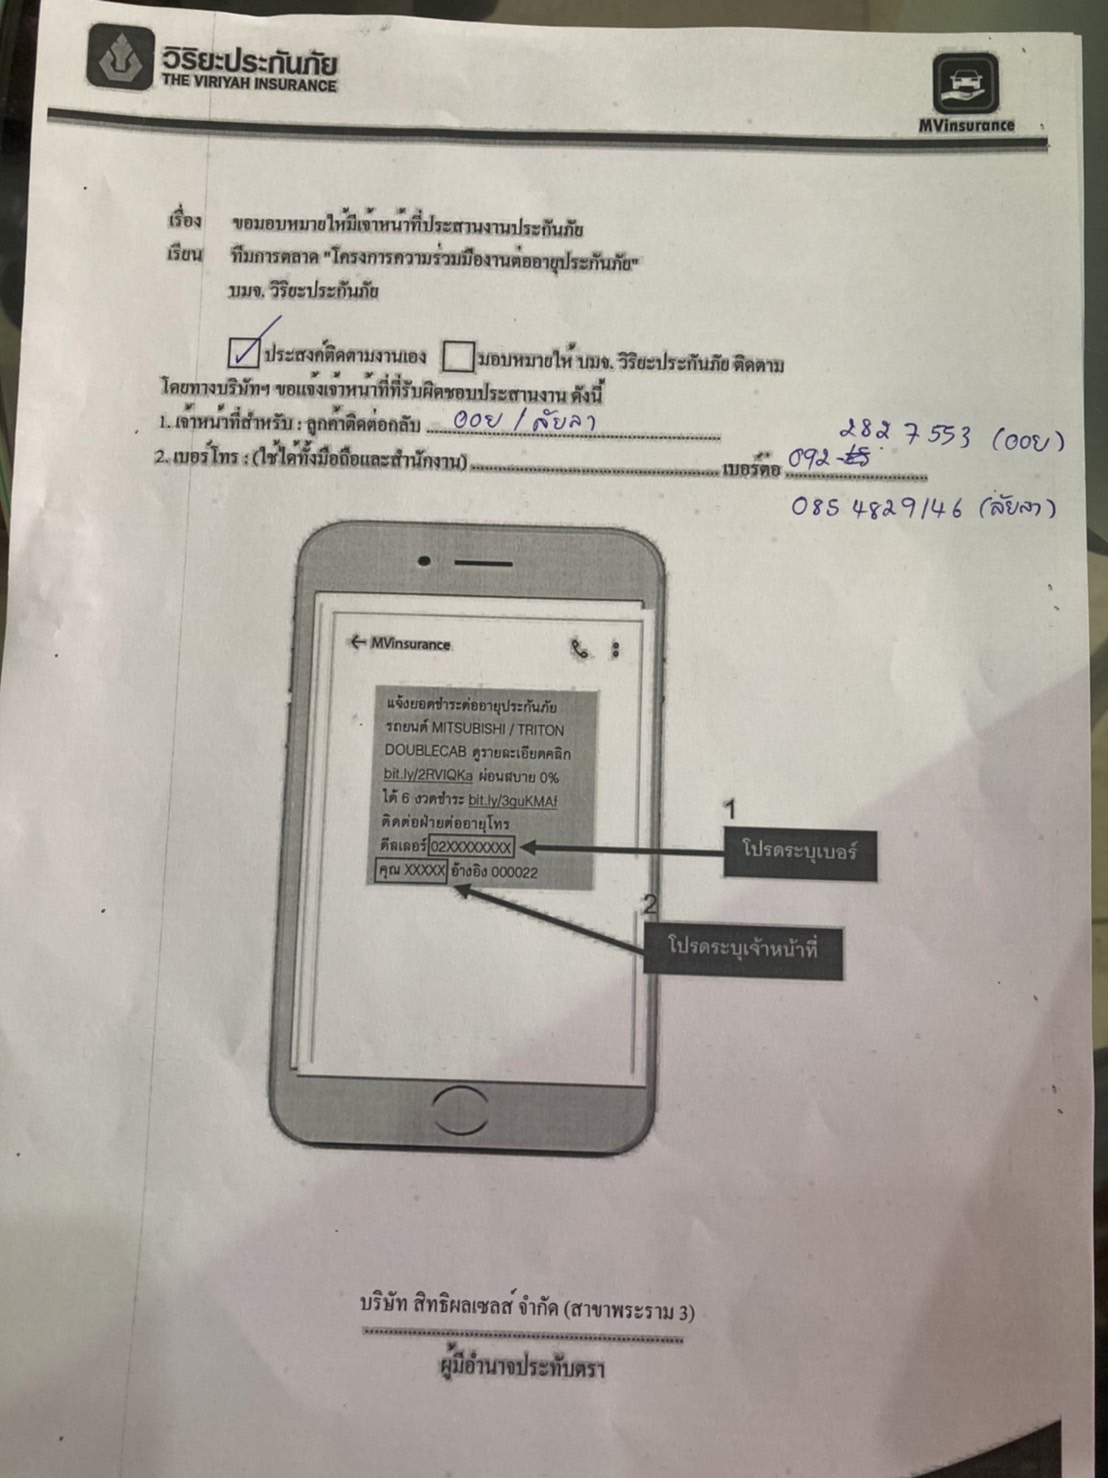 วิริยะประกันภัย
THE VIRIYAH INSURANCE
MVinsurance
เรื่อง ขอมอบหมายให้มีเจ้าหน้าที่ประสานงานประกันภัย
เรียน ทีมการตลาด "โครงการความร่วมมืองานต่ออายุประกันภัย"
บมจ. วิริยะประกันภัย
ประสงค์ติดตามงานเอง มอบหมายให้ บมจ. วิริยะประกันภัย ติดตาม
โดยทางบริษัทฯ ขอแจ้งเจ้าหน้าที่ที่รับผิดชอบประสานงาน ดังนี้
1. เจ้าหน้าที่สำหรับ : ลูกค้าติดต่อกลับ ออย / ลัยลา
2827553 (ออย)
2. เบอร์โทร : (ใช้ได้ทั้งมือถือและสำนักงาน) เบอร์ต่อ 092
0854829146 (ลัยลา)
← MVinsurance
แจ้งยอดชำระต่ออายุประกันภัย
รถยนต์ MITSUBISHI / TRITON
DOUBLECAB ดูรายละเอียดคลิก
bit.ly/2RVIQKa ผ่อนสบาย 0%
ได้ 6 งวดชำระ bit.ly/3guKMAf
ติดต่อฝ่ายต่ออายุโทร
ดีลเลอร์ 02XXXXXXXX
คุณ XXXXX อ้างอิง 000022
1
โปรดระบุเบอร์
2
โปรดระบุเจ้าหน้าที่
บริษัท สิทธิผลเซลส์ จำกัด (สาขาพระราม 3)
ผู้มีอำนาจประทับตรา